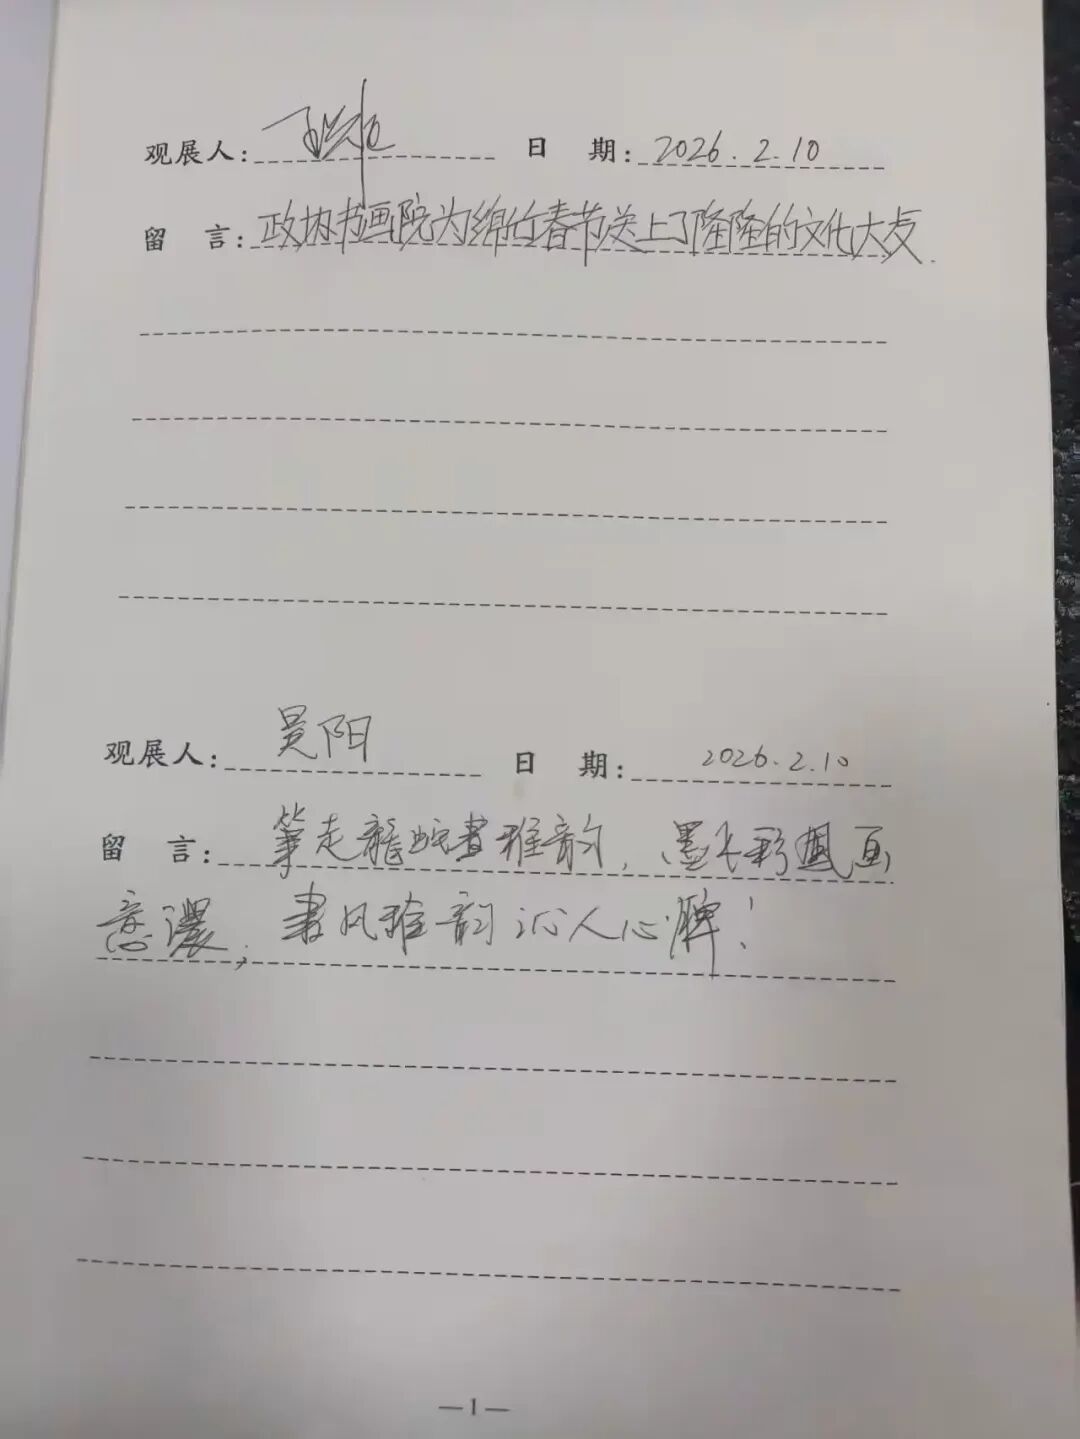 观展人: 日 期: 2026.2.10
留 言: 政协书画院为绵竹春节送上了隆隆的文化大友.
观展人: 吴阳 日 期: 2026.2.10
留 言: 笔走龍蛇書雅韵, 墨 彩 画
意濃, 書风雅韵沁人心脾!
—1—